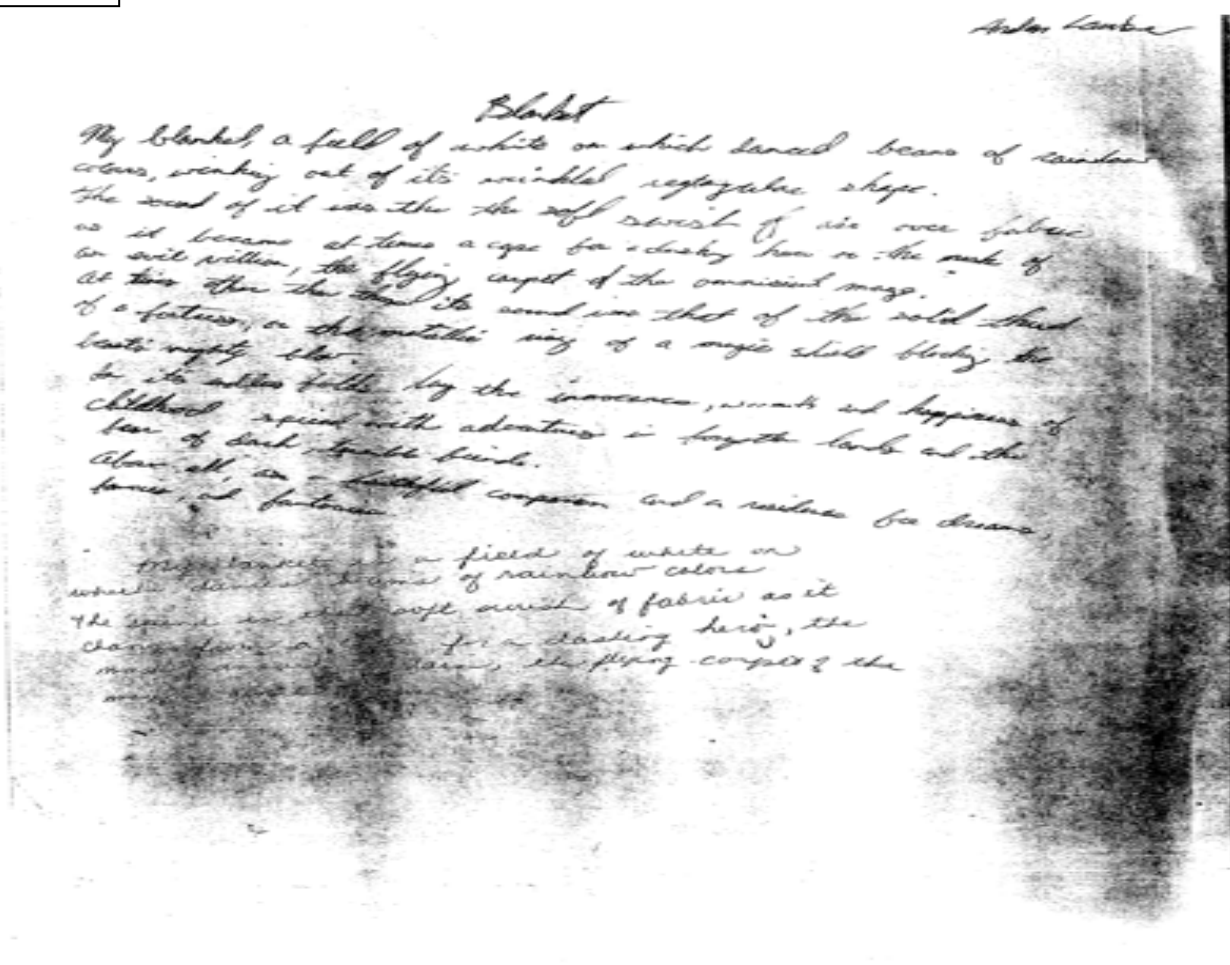 Blanket
My blanket, a field of white on which danced beams of rainbow
colours, winking out of its wrinkled shape.
The sound of it was the the soft swish of air over fabric
as it became at times a cape for a dashing hero or the mask of
an evil villian, the flying carpet of the omniscient mage.
At times other the its sound was that of the solid thud
of a fortress, or the metallic ring of a magic shield blocking the
mighty blow.
In its folds lay the innocence, warmth and happiness of
childhood spiced with adventures in lands and the
fear of
Above all, a faithful companion and a residence for dreams,
fancies, and fantasies
My blanket is a field of white on
which dances beams of rainbow colors
The sound is that soft swish of fabric as it
for a dashing hero, the
the flying carpet of the